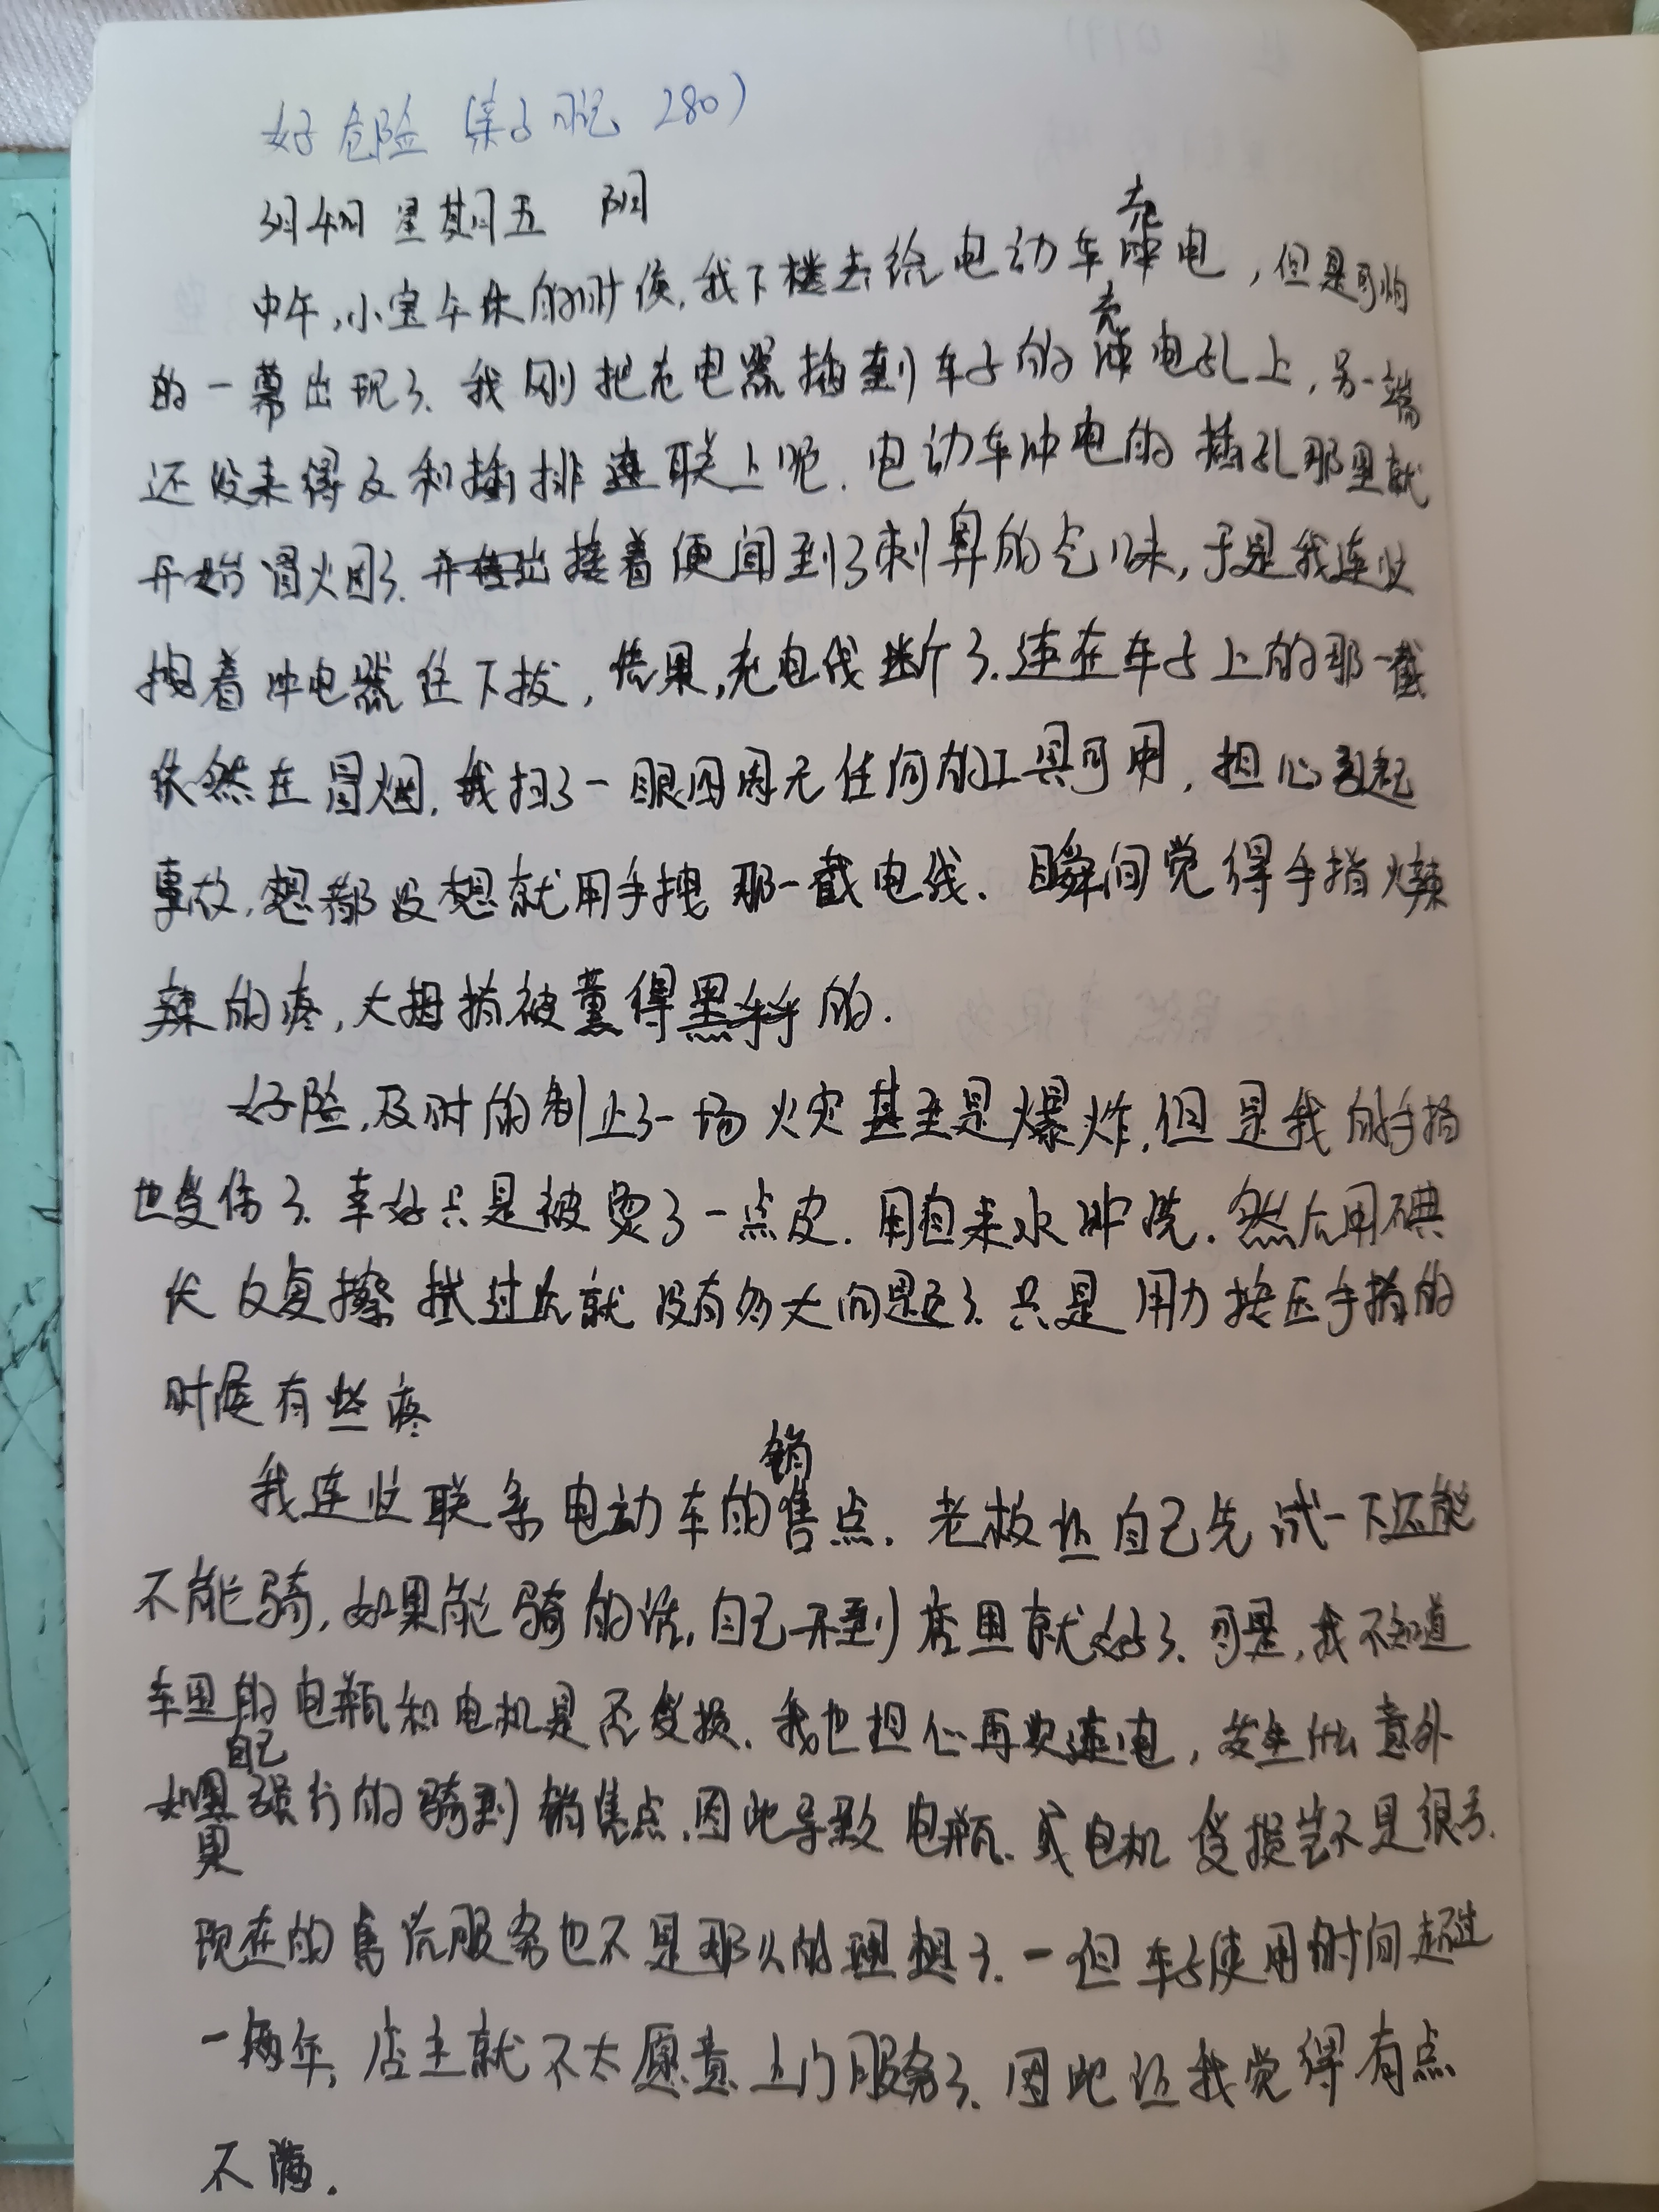 好危险(亲子日记 280)
3月4日 星期五 阴
中午,小宝午休的时候,我下楼去给电动车充电,但是可怕
的一幕出现了.我刚把充电器插到车子的充电孔上,另一端
还没来得及和插排连联上呢.电动车冲电的插孔那里就
开始冒火困了.接着便闻到了刺鼻的气味,于是我连忙
拽着冲电器往下拔,结果,充电线断了.连在车子上的那一截
依然在冒烟.我扫了一眼四周无任何的工具可用,担心引起
事故,想都没想就用手拽那一截电线.瞬间觉得手指火辣
辣的疼,大拇指被熏得黑的.
好险,及时的制止了一场火灾甚至是爆炸,但是我的手指
也受伤了.幸好只是被烫了一点皮.用自来水冲洗.然后用碘
伏反复擦拭过后就没有多大问题了.只是用力按压手指的
时候有些疼
我连忙联系电动车的销售点.老板让自己先试一下还能
不能骑,如果能骑的话,自己开到店里就好了.可是,我不知道
车里的电瓶和电机是否受损.我也担心再次连电,发生什么意外
如果自己强行的骑到销售点.因此导致电瓶.或电机受损岂不是很亏.
现在的售后服务也不是那么的理想了.一但车子使用时间超过
一两年,店主就不太愿意上门服务了.因此让我觉得有点
不满.